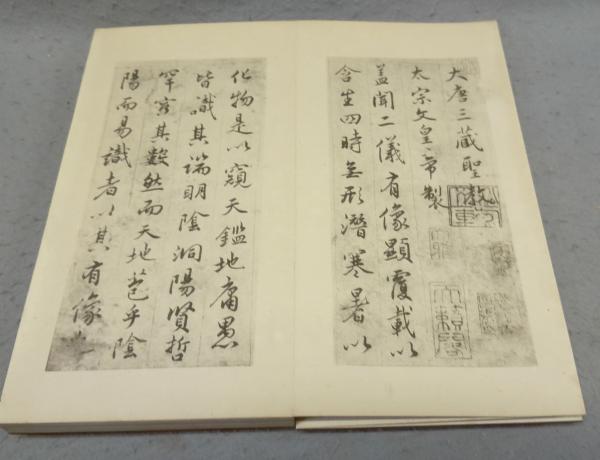 大唐三藏聖教
太宗文皇帝製
蓋聞二儀有像顯覆載以
含生四時無形潛寒暑以
化物是以窺天鑑地庸愚
皆識其端明陰洞陽賢哲
罕窮其數然而天地苞乎陰
陽而易識者以其有像也